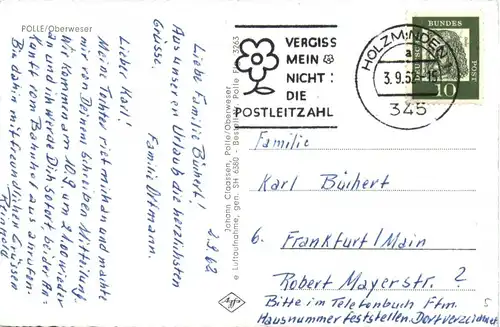 POLLE/Oberweser
2.9.62
Liebe Familie Büchert!
Aus unseren Urlaub die herzlichsten
Grüsse.
Familie Ortmann.
Lieber Karl!
Meine Tochter rief mich an und machte
mir von Deinem Schreiben Mitteilung.
Wir kommen am 10.9 um 21.00 wieder
an und ich werde Dich sofort bei der An-
kunft vom Bahnhof aus anrufen.
Bis dahin mit freundlichen Grüssen
Reinhold
Johann Claassen, Polle/Oberweser
Luftaufnahme, gen. SH 6380 - Bestell Polle 3263
Agfa
VERGISS
MEIN
NICHT:
DIE
POSTLEITZAHL
HOLZMINDEN
a
3.9.62-15
345
BUNDES
10
Familie
Karl Büchert
6. Frankfurt/Main
Robert Mayerstr. ?
Bitte im Telefonbuch Ffm.
Hausnummer feststellen. Dort verzeichnet
5